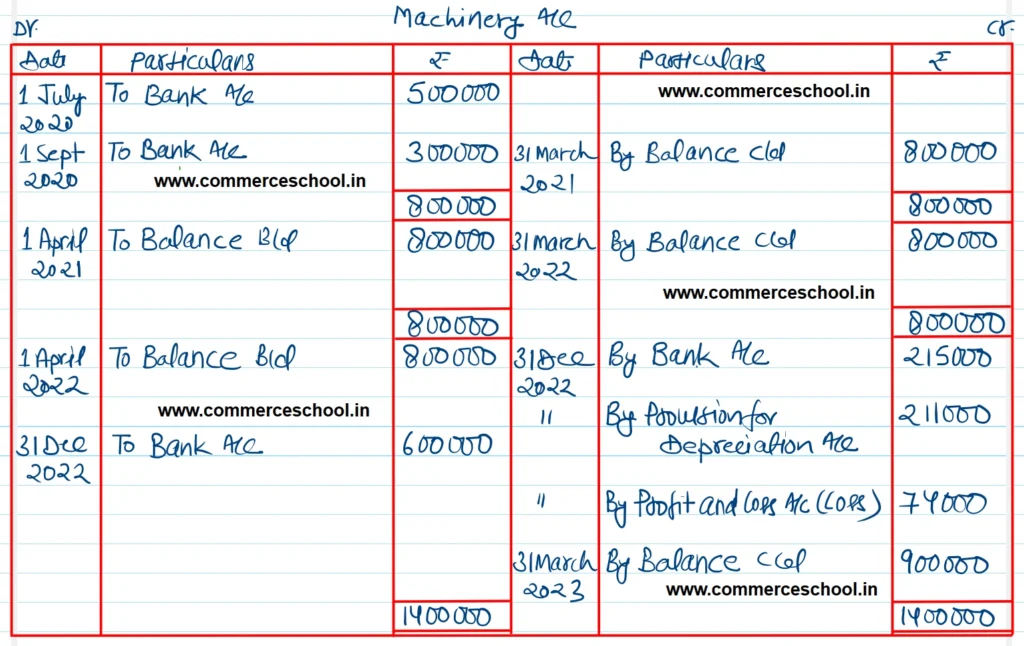 Machinery A/c
Dr.
Cr.
Date Particulars ₹ Date Particulars ₹
1 July To Bank A/c 500000 www.commerceschool.in
2020
1 Sept To Bank A/c 300000 31 March By Balance c/d 800000
2020 www.commerceschool.in 2021
800000 800000
1 April To Balance B/d 800000 31 March By Balance c/d 800000
2021 2022
www.commerceschool.in
800000 800000
1 April To Balance B/d 800000 31 Dec By Bank A/c 215000
2022 2022
www.commerceschool.in " By Provision for 211000
31 Dec To Bank A/c 600000 Depreciation A/c
2022
" By Profit and Loss A/c (Loss) 74000
31 March By Balance c/d 900000
2023 www.commerceschool.in
1400000 1400000